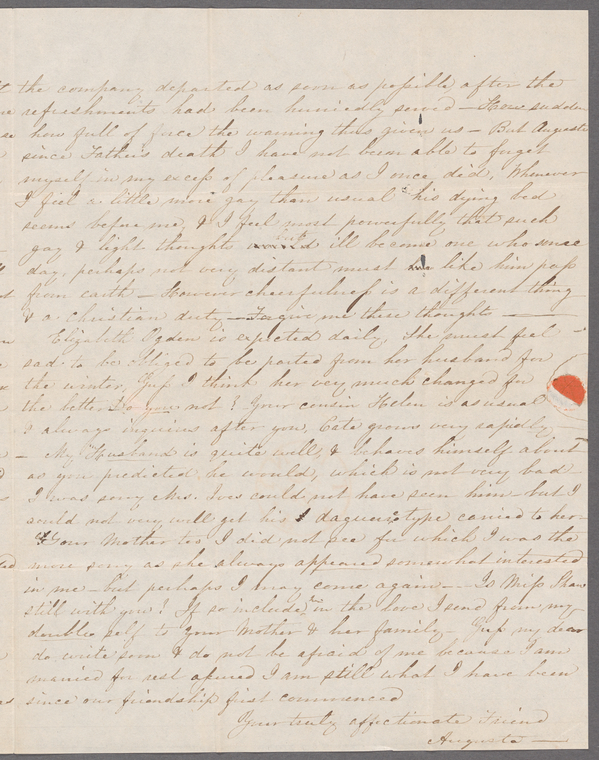 the company departed as soon as possible after the
refreshments had been hurriedly served - How sudden
how full of force the warning thus given us - But Augusta
since Father's death I have not been able to forget
myself in my excess of pleasure as I once did, Whenever
I feel a little more gay than usual his dying bed
seems before me, & I feel most powerfully that such
gay & light thoughts but ill become one who some
day, perhaps not very distant must like him pass
from earth - However cheerfulness is a different thing
& a Christian duty - Forgive me these thoughts -
Elizabeth Ogden is expected daily, She must feel
sad to be obliged to be parted from her husband for
the winter, I think her very much changed for
the better Do you not? Your cousin Helen is as usual
& always inquires after you, Cate grows very rapidly
- My Husband is quite well, & behaves himself about
as you predicted he would, which is not very bad
I was sorry Mrs. Ives could not have seen him but I
could not very well get his daguerreotype carried to her
Your Mother too I did not see for which I was the
more sorry as she always appeared somewhat interested
in me - but perhaps I may come again - Is Miss Shaw
still with you? If so include her in the love I send from my
double self to your Mother & her family - my dear
do write soon & do not be afraid of me because I am
married for rest assured I am still what I have been
since our friendship first commenced
Your truly affectionate Friend
Augusta -